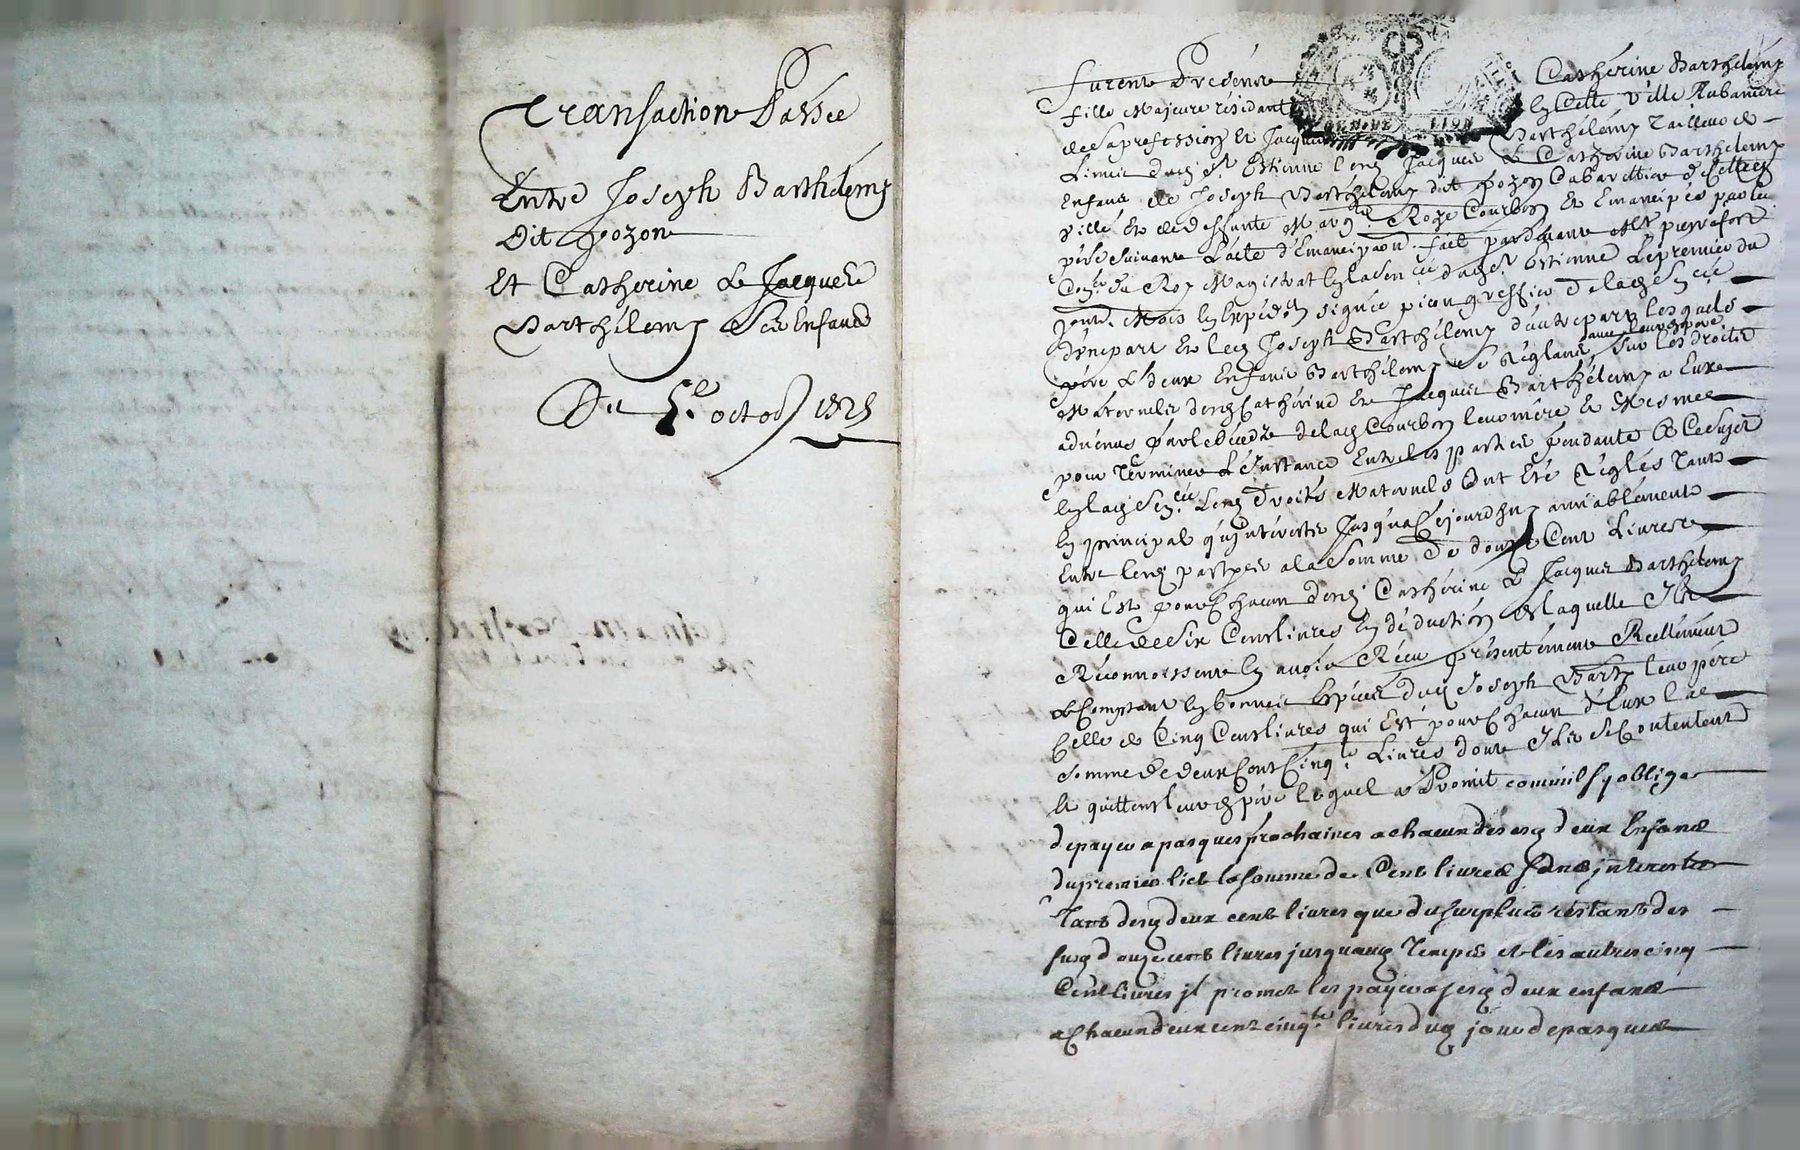 Transaction Passée
Entre Joseph Barthelemy
dit pozon
Et Catherine & Jacques
Barthelemy Ses Enfans
Du 5e octob
furent Presents Catherine Barthelemy
fille Majeure résidant En Cette Ville Rubaniere
de sa profession Et Jacques Barthélemy Tailleur de
Limes dud St Estienne lesq Jacques & Catherine Barthelemy
Enfans de Joseph Barthelemy dit pozon Cabarettier de Cette
Ville Et de deffunte Roze Courbon Et Emancipés par leur
père Suivant L'acte d'Emancipaon fait pardevant
du Roy Magistrat En la Sen St Estienne Le premier du
jourd. Mois En Expédon signée greffier de lad Sen
d'une part Et led Joseph Barthélemy d'autre part lesquels
père & deux Enfans Barthélemy Se Réglans avec leurd père Sur les droits
Maternels desd Catherine Et Jacques Barthélemy a Eux
advenus par le décedz de lad Courbon leur mère Et Mesmes
pour Terminer L'Instance Entre les parties pendante a Ce Sujet
En lad Sen. Lesd Droits Maternels Ont Eté Réglés Tant
En principal qu'jnterests Jusqua Cejourdhuy amiablement
Entre lesd parties a la Somme De douze Cent Livres
qui Est pour Chacun desd. Catherine & Jacques Barthelemy
Celle de Six Cens livres En déduction de laquelle Ils
Réconnoissent En avoir Réçu présentement Réellement
& Comptant En bonnes Espèces dud Joseph Barty leur père
Celle de Cinq Cens livres qui Est pour Chacun d'Eux la
Somme de deux Cent Cinqte Livres dont Ils Se Contentent
Et quittent leurd père lequel a Promit comm'il s'y oblige
de payer a pasques prochaines a chacun des deux Enfans
du premier lict la somme de Cent livres sans jnterests
Tant desd deux cent livres que du surplus restant des
susd douze cent livres jusquaud Temps et les autres cinq
Cent livres jl promet les payer a sesd deux enfans
a Chacun deux cent cinqte livres dud jour de pasques